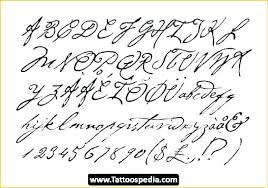 A B C D E F G H I J K L
M N O P Q R S T U V W X
Y Z À Å É Î Õ Ø Ü a b c d e f g
h i j k l m n o p q r s t u v w x y z à å é &
1 2 3 4 5 6 7 8 9 0 ( $ £ . , ! ? )
www.Tattoospedia.com